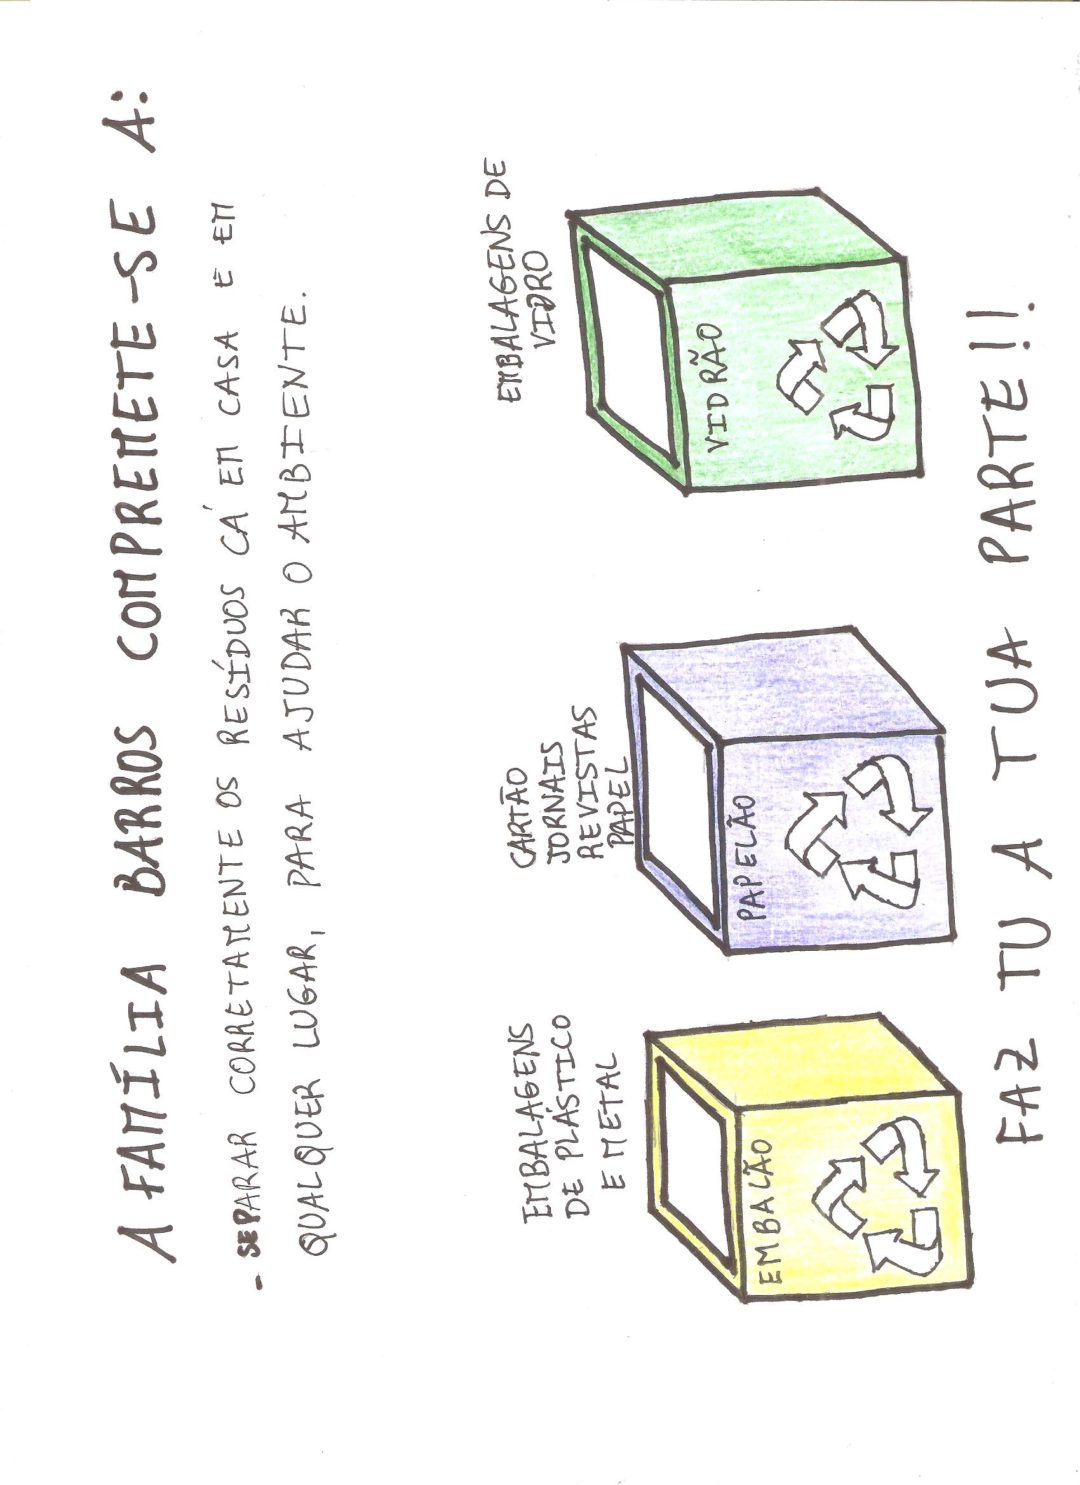 A FAMÍLIA BARROS COMPREMETE-SE A:
- SEPARAR CORRETAMENTE OS RESÍDUOS CÁ EM CASA E EM
QUALQUER LUGAR, PARA AJUDAR O AMBIENTE.
EMBALAGENS
DE PLÁSTICO
E METAL
EMBALÃO
CARTÃO
JORNAIS
REVISTAS
PAPEL
PAPELÃO
EMBALAGENS DE
VIDRO
VIDRÃO
FAZ TU A TUA PARTE!!.